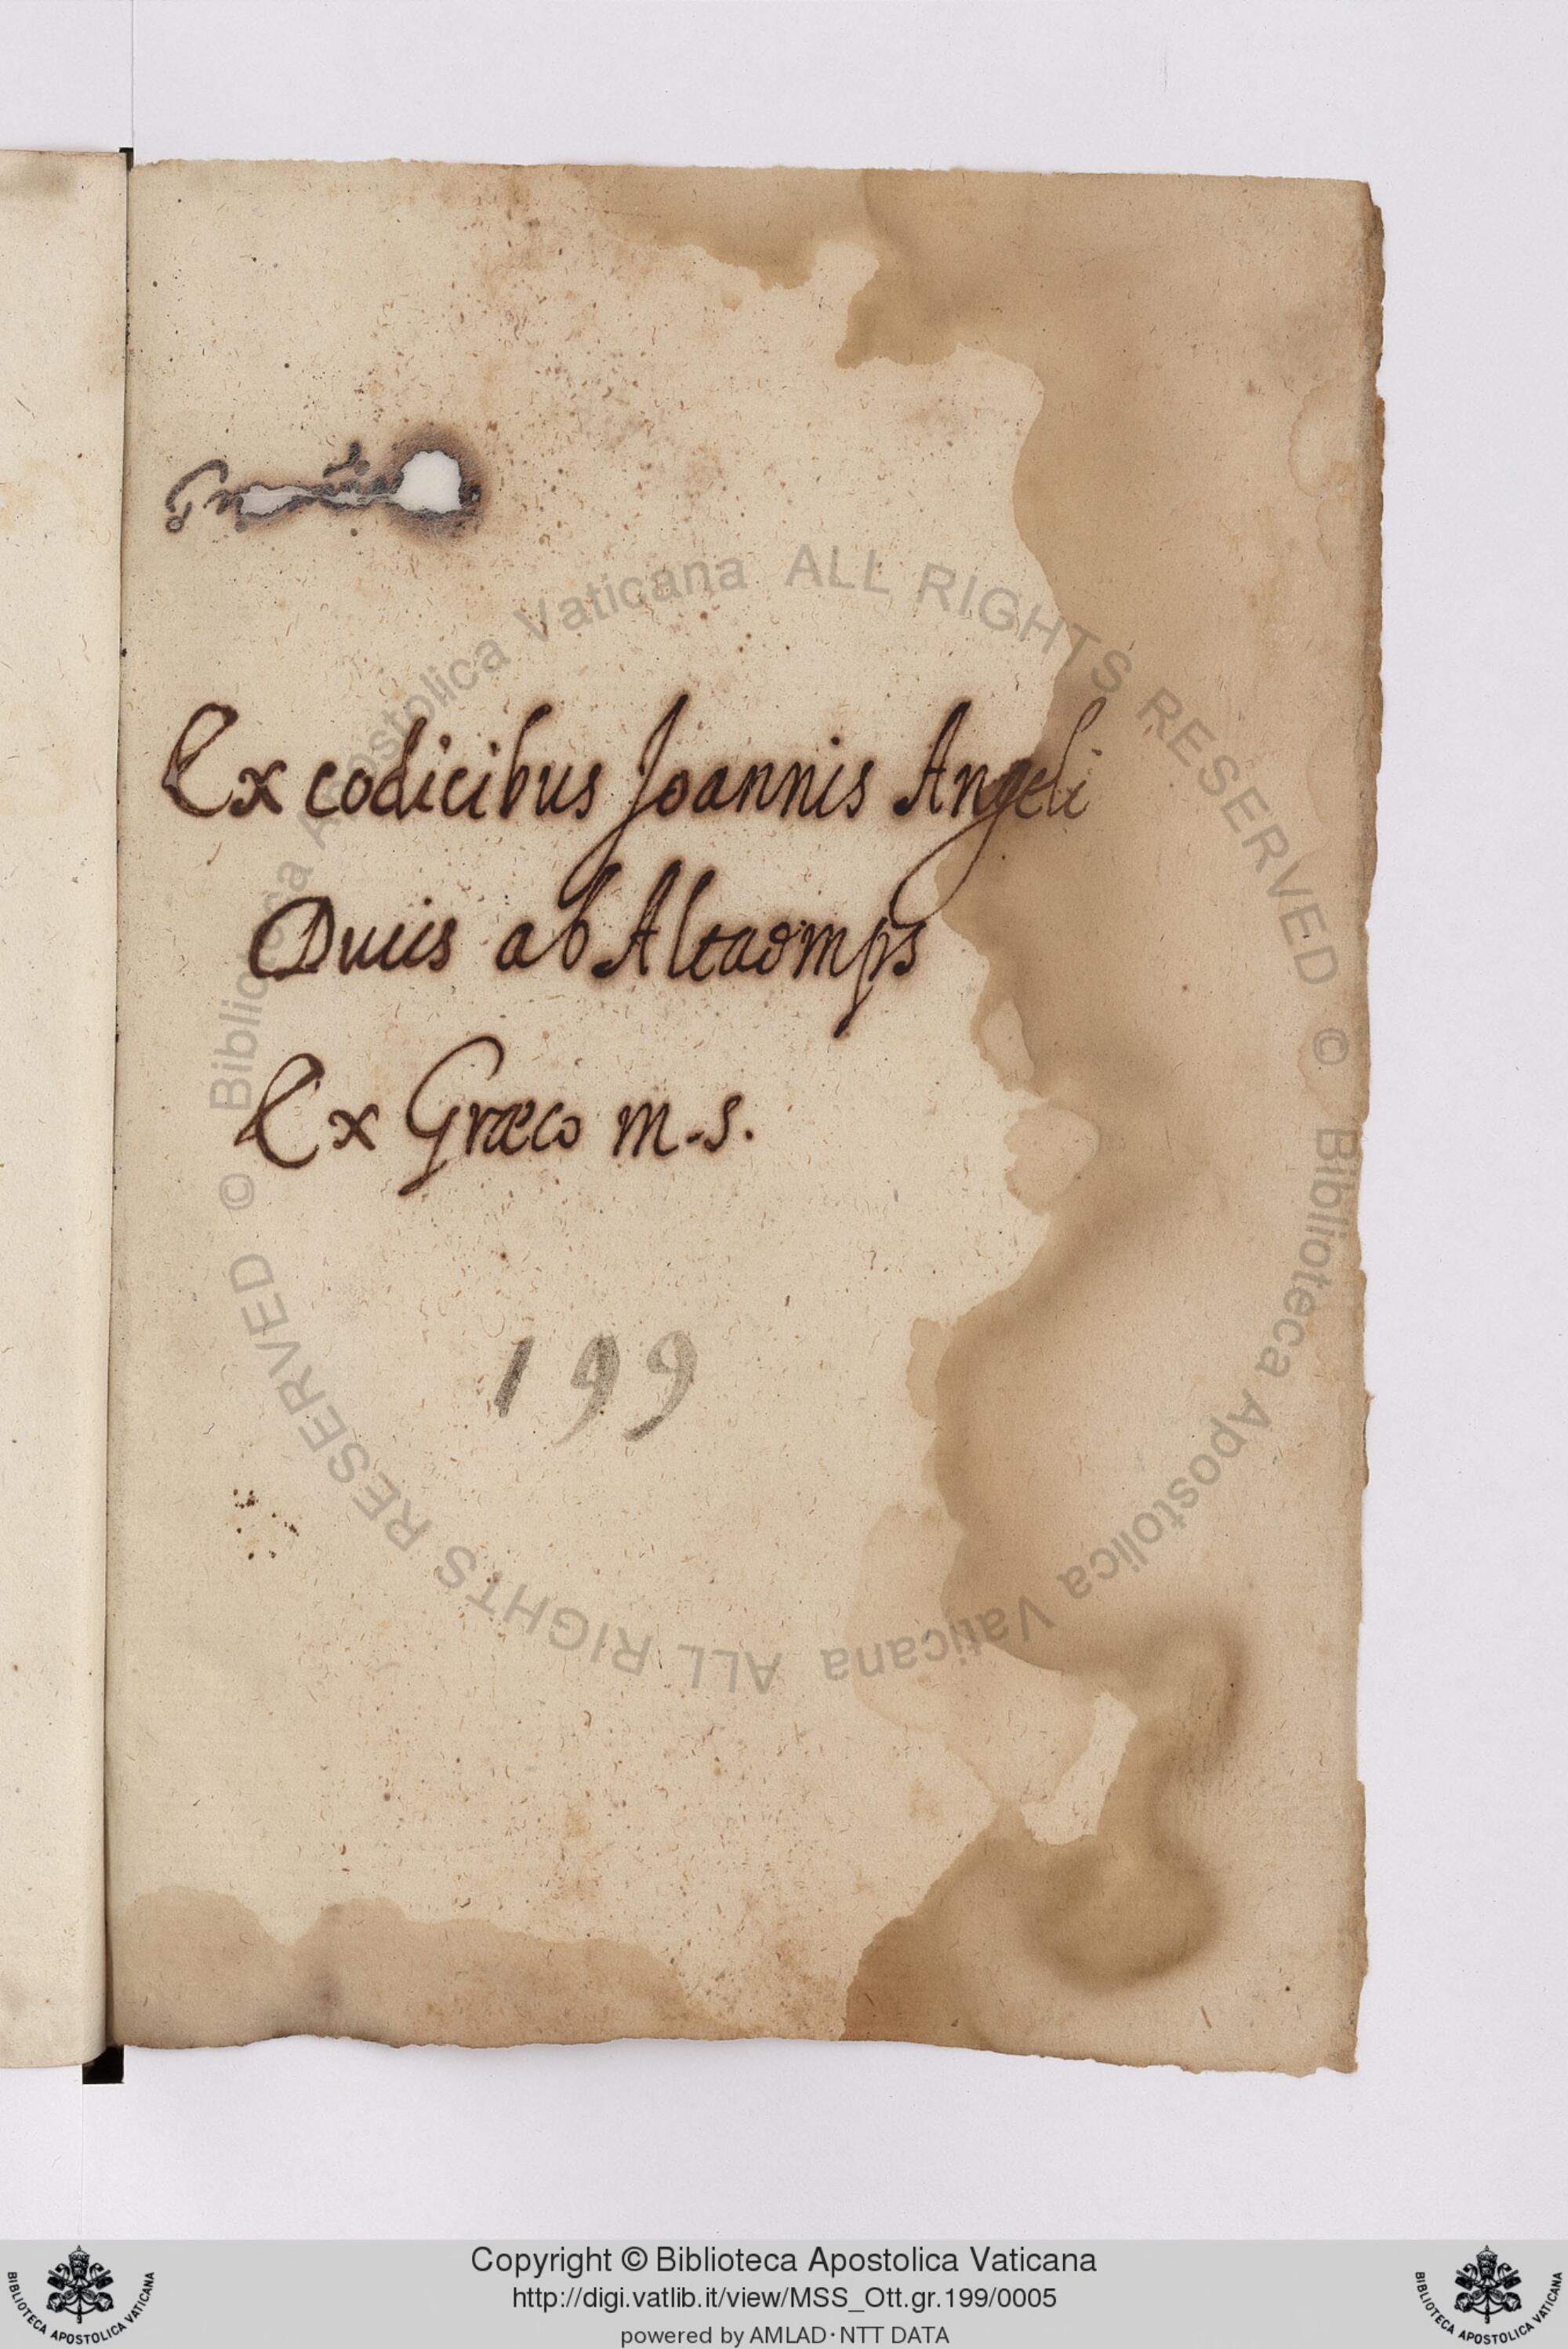 Ex codicibus Joannis Angeli
Ducis ab Altaemps
Ex Græco m.s.
199
© Biblioteca Apostolica Vaticana ALL RIGHTS RESERVED © Biblioteca Apostolica Vaticana ALL RIGHTS RESERVED
Copyright © Biblioteca Apostolica Vaticana
http://digi.vatlib.it/view/MSS_Ott.gr.199/0005
powered by AMLAD·NTT DATA
BIBLIOTECA APOSTOLICA VATICANA
BIBLIOTECA APOSTOLICA VATICANA